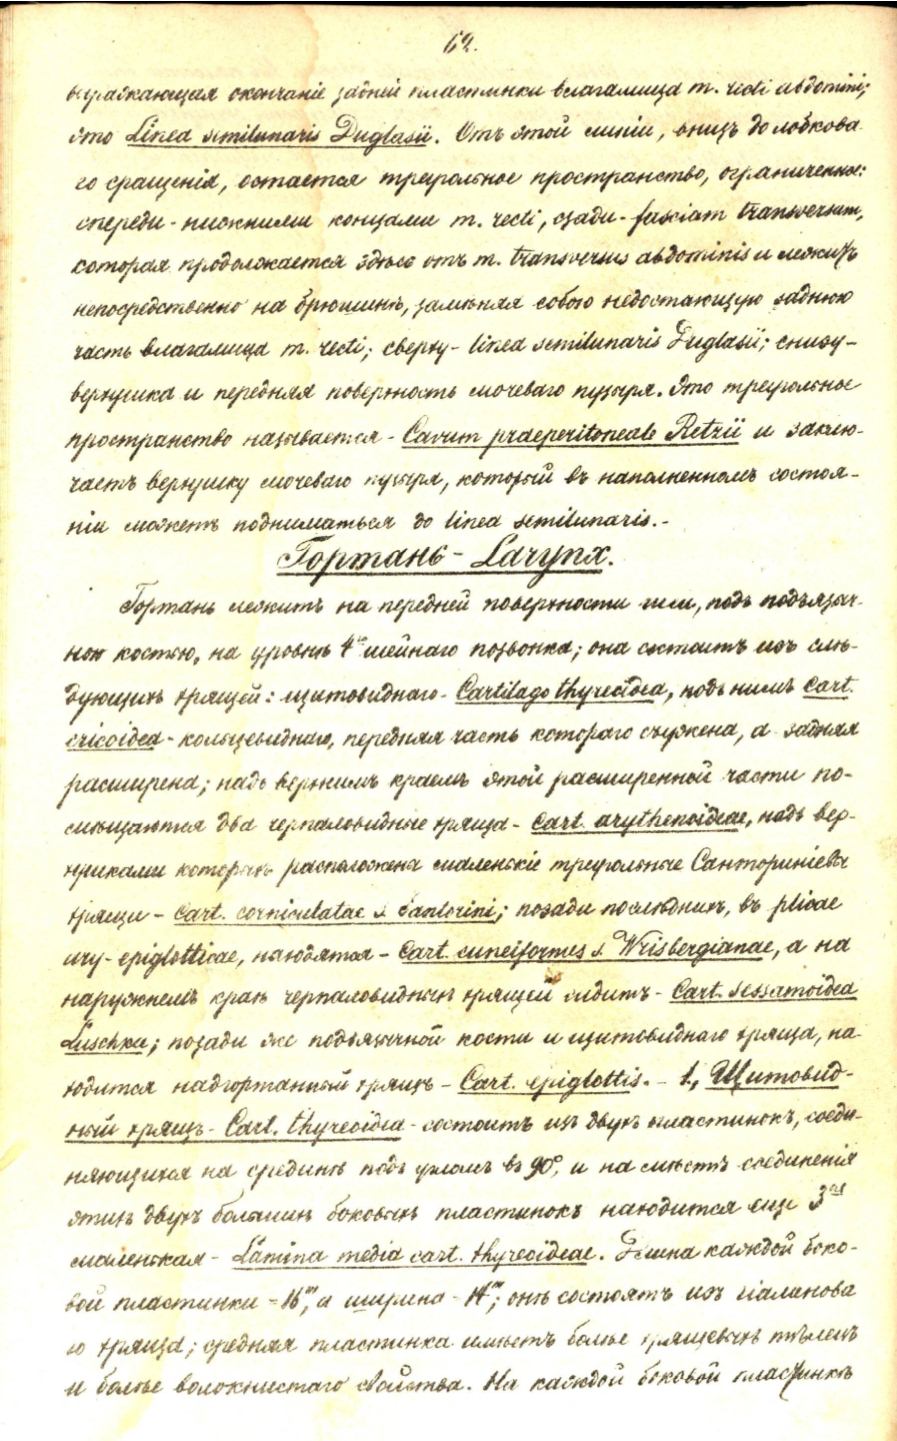 62.
выражающая окончаніе задней пластинки влагалища m. recti abdomini;
это Linea semilunaris Duglasii. Отъ этой линіи, внизъ до лобкова
го сращенія, остается треугольное пространство, ограниченное:
спереди - нижними концами m. recti, сзади - fasciam transversam,
которая продолжается здѣсь отъ m. transversus abdominis и лежитъ
непосредственно на брюшинѣ, замѣняя собою недостающую заднюю
часть влагалища m. recti; сверху - linea semilunaris Duglasii; снизу -
верхушка и передняя поверхность мочеваго пузыря. Это треугольное
пространство называется - Cavum praeperitoneale Retzii и заклю-
чаетъ верхушку мочеваго пузыря, который въ наполненномъ состоя-
ніи можетъ подниматься до linea semilunaris. -
Гортань - Larynx.
Гортань лежитъ на передней поверхности шеи, подъ подъязыч-
ной костью, на уровнѣ 4го шейнаго позвонка; она состоитъ изъ слѣ-
дующихъ хрящей: щитовиднаго - Cartilago thyreoidea, подъ нимъ Cart.
cricoidea - кольцевиднаго, передняя часть котораго съужена, а задняя
расширена; надъ верхнимъ краемъ этой расширенной части по-
мѣщаются два черпаловидные хряща - Cart. arythenoideae, надъ вер-
хушками которыхъ расположены маленькіе треугольные Санториніевы
хрящи - Cart. corniculatae s. Santorini; позади послѣднихъ, въ plicae
ary-epiglotticae, находятся - Cart. cuneiformes s. Wrisbergianae, а на
наружнемъ краѣ черпаловидныхъ хрящей сидитъ - Cart. sessamoidea
Luschka; позади же подъязычной кости и щитовиднаго хряща, на-
ходится надгортанный хрящъ - Cart. epiglottis. - 1, Щитовид-
ный хрящъ - Cart. thyreoidea - состоитъ изъ двухъ пластинокъ, соеди-
няющихся на срединѣ подъ угломъ въ 90°, и на мѣстѣ соединенія
этихъ двухъ большихъ боковыхъ пластинокъ находится еще 3ая
маленькая - Lamina media cart. thyreoideae. Длина каждой боко-
вой пластинки = 16''', а ширина - 14'''; онѣ состоятъ изъ гіалинова
го хряща; средняя пластинка имѣетъ болѣе хрящевыхъ тѣлецъ
и болѣе волокнистаго свойства. На каждой боковой пластинкѣ